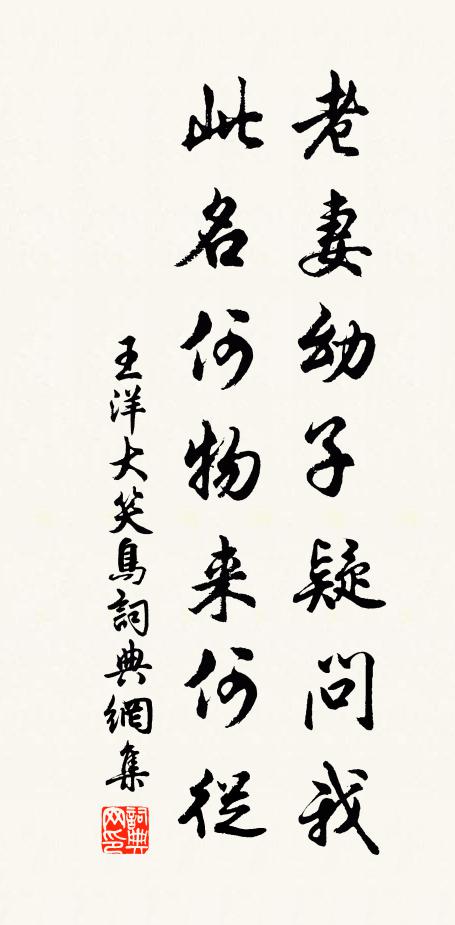 老妻幼子疑問我
此名何物来何從
王洋大笑鳥詞典網集
詞典网印